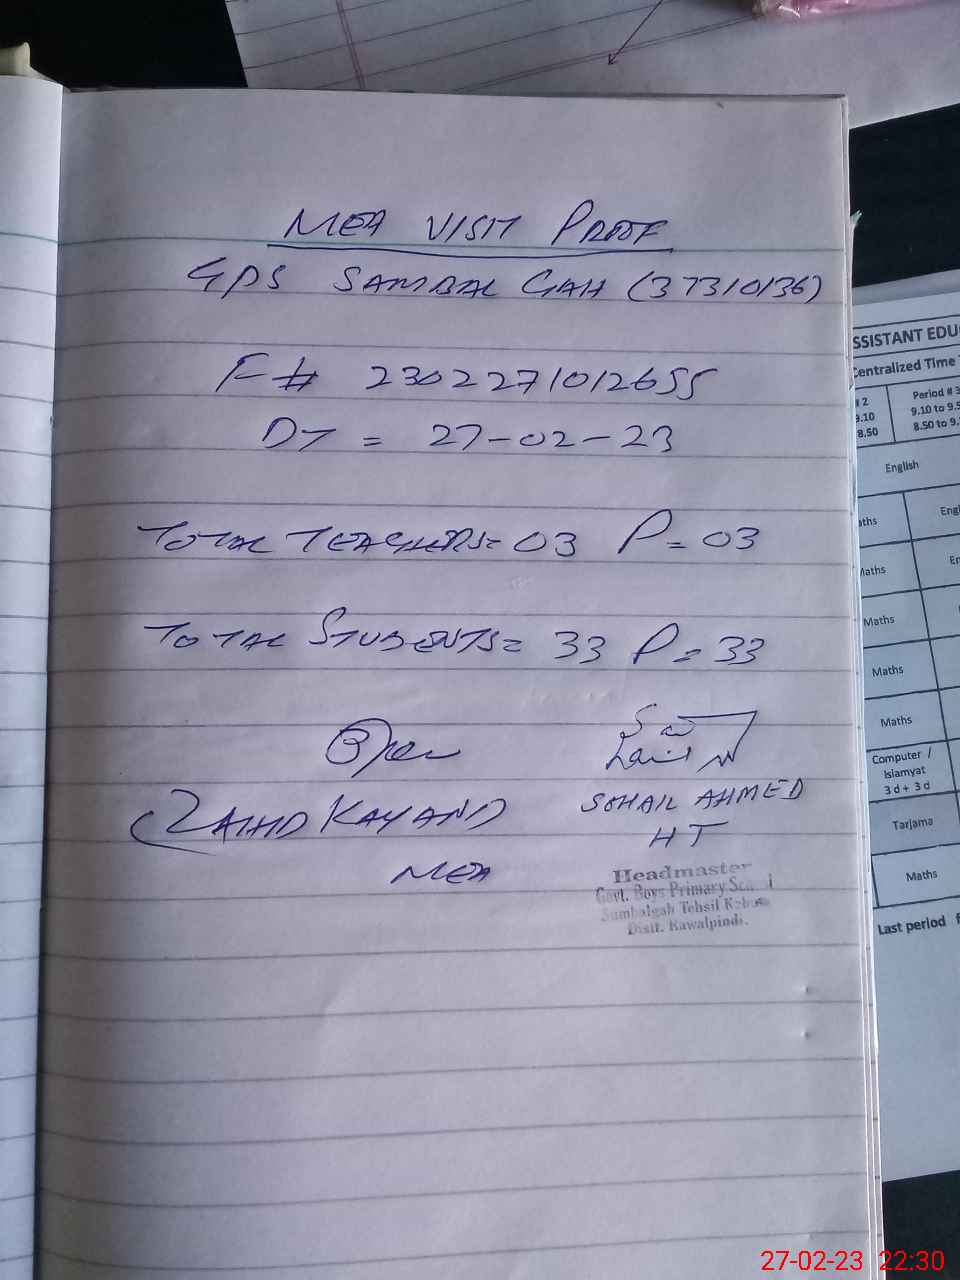 MEA VISIT PROOF
GPS SAMBAL GAH (37310136)
F# 2302271012655
DT = 27-02-23
TOTAL TEACHERS= 03 P= 03
TOTAL STUDENTS= 33 P= 33
ZAHID KAYANI
MEA
SOHAIL AHMED
HT
Headmaster
Govt. Boys Primary School
Sumbalgah Tehsil
Distt. Rawalpindi.
SSISTANT EDU
Centralized Time
# 2
9.10
8.50
Period # 3
9.10 to 9.5
8.50 to 9.
English
aths
Engl
Maths
En
Maths
Maths
Maths
Computer /
Islamyat
3 d + 3 d
Tarjama
Maths
Last period
27-02-23 22:30